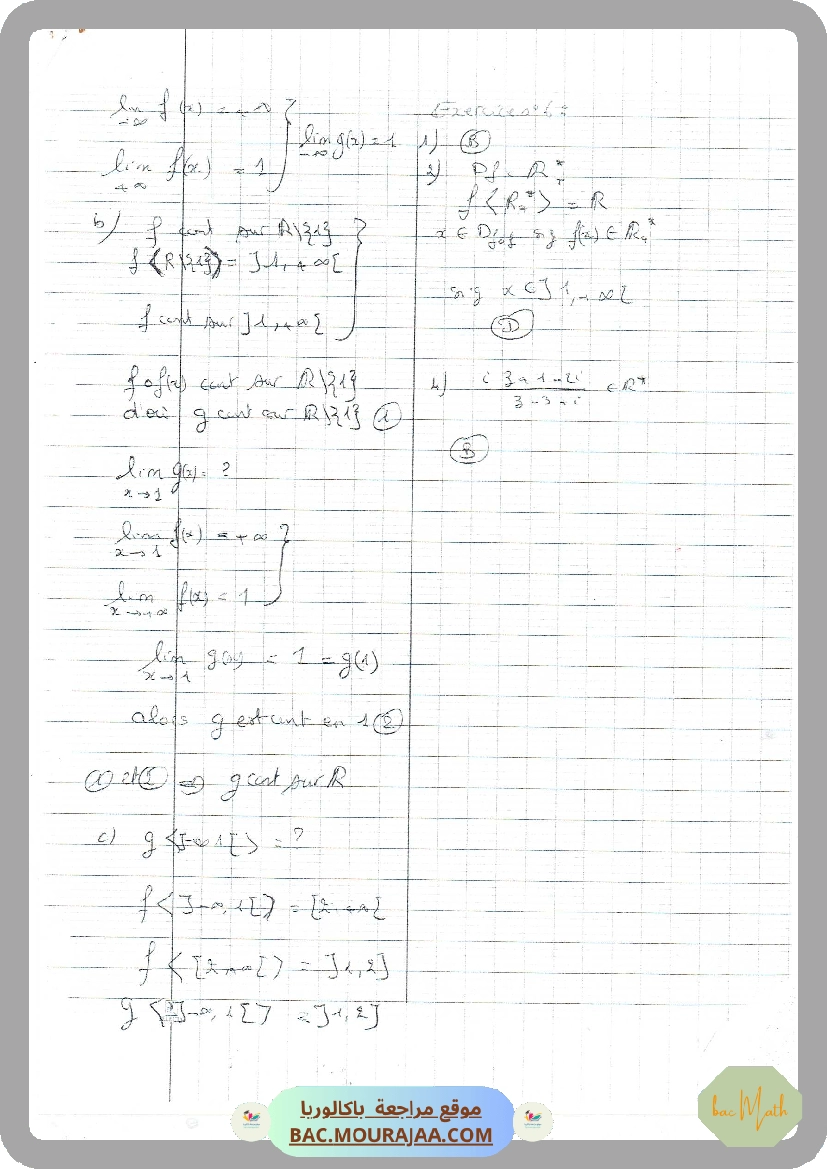 lim f(x) = +∞
-∞
lim f(x) = 1
+∞
lim g(x) = 1
-∞
b) f cont sur R\{1}
f<R\{1}> = ]1,+∞[
f cont sur ]1,+∞[
fof(x) cont sur R\{1}
d'où g cont sur R\{1} ①
lim g(x) = ?
x→1
lim f(x) = +∞
x→1
lim f(x) = 1
x→+∞
lim g(x) = 1 = g(1)
x→1
alors g est cont en 1 ②
① et ② ⇒ g cont sur R
c) g<]-∞,1[> = ?
f<]-∞,1[> = [2,+∞[
f<[2,+∞[> = ]1,2]
g<]-∞,1[> = ]1,2]
Exercice n°1 :
1) B
2) Df = R*+
f<R*+> = R
x ∈ Dfof sig f(x) ∈ R+*
sig x ∈ ]1,+∞[
D
4) i3+1-2i / 3-3+i ∈ R*
B
موقع مراجعة باكالوريا
BAC.MOURAJAA.COM
bac Math